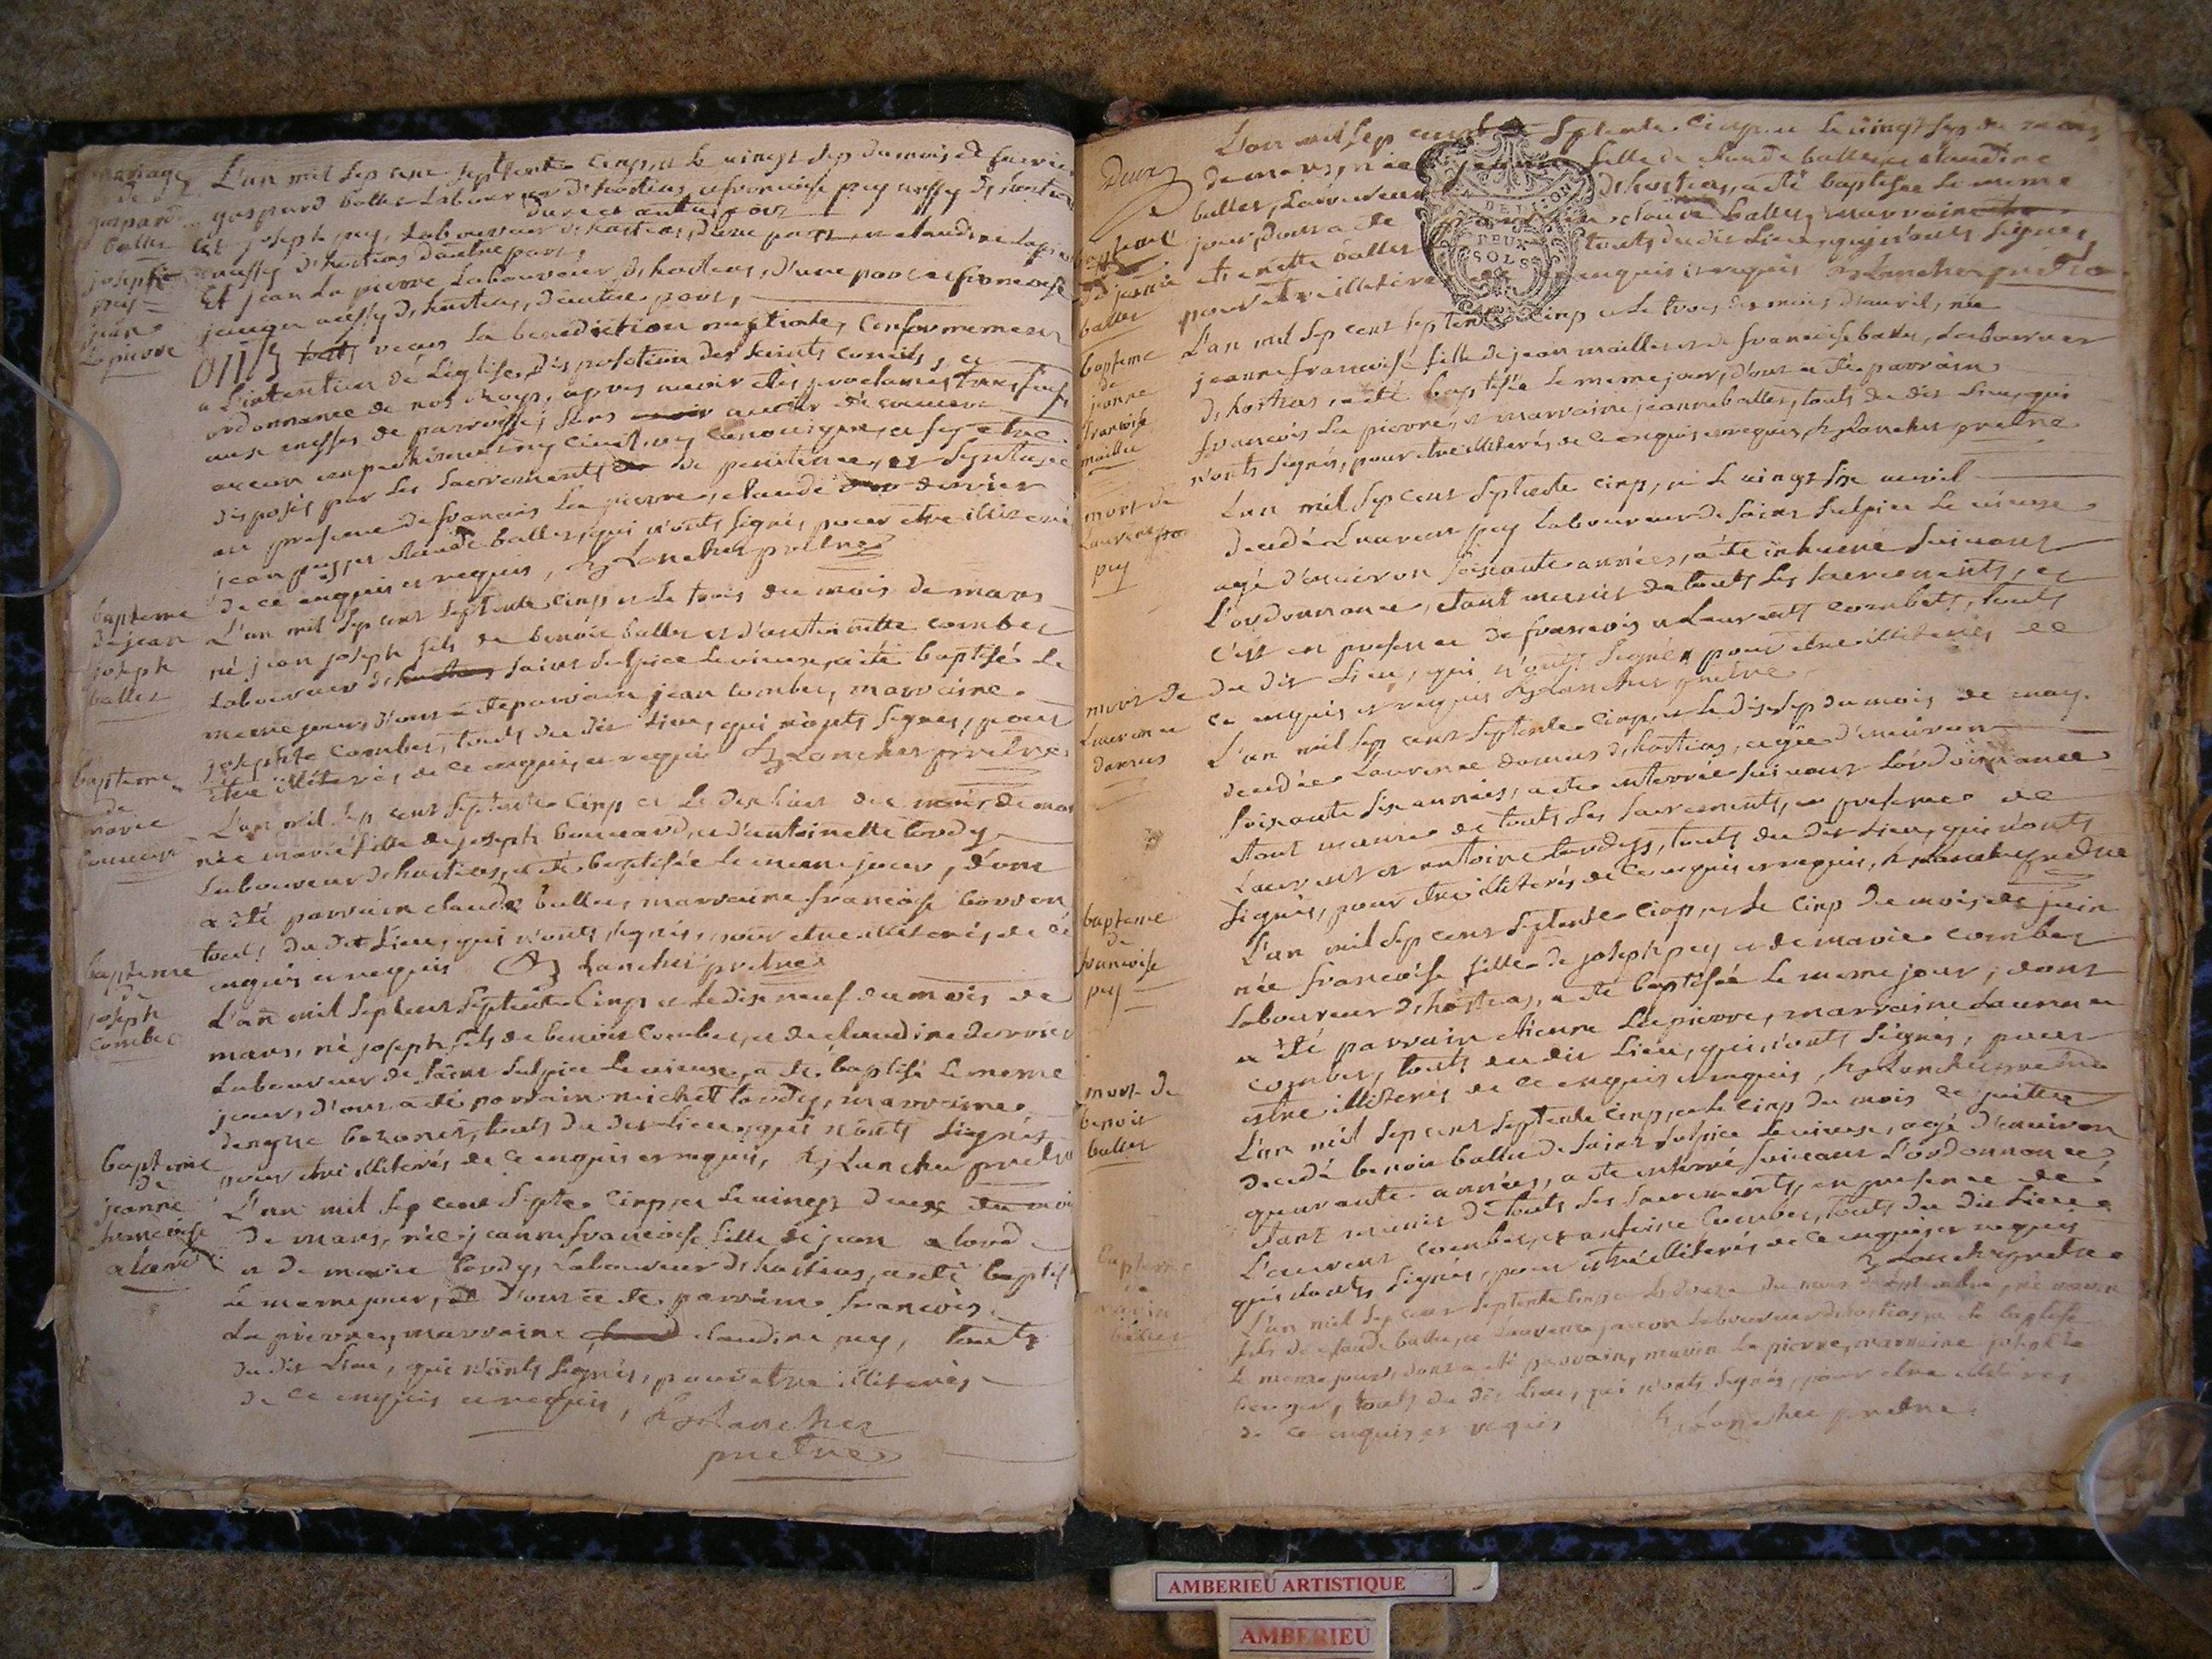 mariage
de
gaspard
ballet
joseph
pey
jean
Lapierre
L'an mil sep cent septente cinp, et le vingt sep du mois de fevrier
gaspard ballet Laboureur d'hostias, et françoise pey aussy d'hostias
d'une et autre part
Et joseph pey, Laboureur d'hostias, d'une part, et claudine Lapierre
aussy d'hostias d'autre part,
Et jean La pierre Laboureur d'hostias, d'une part et françoise
aussy d'hostias, d'autre part,
reçus La benediction nuptiale, Conformement
a L'intention de L'eglise, disposition des saints conciles, et
ordonnance de nos Roys, apres avoir étés proclamés trois fois
aux messes de parroisse, sans avoir decouvert
aucun empechement ny civil, ny canonique, et s'y etre
disposés par Les sacrements de penitence, et
en presence de françois La pierre, claude dervier
jean puy et claude ballet, qui n'onts signés, pour etre illiterés
de ce enquis et requis, Lancher pretre
bapteme
de jean
joseph
ballet
L'an mil sep cent septente cinp et Le trois du mois de mars
né jean joseph fils de benoit ballet et d'antoinette combet
Laboureur de saint sulpice Le vieux, a été baptisé Le
meme jour, d'ont a été parrain jean combet, marraine
josephte combet, touts du dit Lieu, qui n'onts signés, pour
être illiterés, de ce enquis et requis Lancher pretre
bapteme
de
marie
L'an mil sep cent septente cinp et Le dix huit du mois de mars
née marie fille de joseph et d'antoinette tordy
Laboureur d'hostias, a été baptisée Le meme jour, d'ont
a été parrain claude ballet, marraine françoise
touts du dit Lieu, qui n'onts signés, pour etre illiterés, de ce
enquis et requis Lancher pretre
bapteme
de
joseph
combet
L'an mil sep cent septente cinp et Le dix neuf du mois de
mars, né joseph fils de benoit combet, et de claudine dervier
Laboureur de saint sulpice Le vieux, a été baptisé Le meme
jour, d'ont a été parrain michel tordy, marraine
touts du dit Lieu, qui n'onts signés
pour etre illiterés de ce enquis et requis, Lancher pretre
bapteme
de
jeanne
françoise
L'an mil sep cent septe cinp, et Le vingt deux du mois
de mars, née jeanne françoise fille de jean
et de marie tordy, Laboureur d'hostias, a été baptisée
Le meme jour, d'ont a été parrain françois
La pierre, marraine claudine pey, touts
du dit Lieu, qui n'onts signés, pour etre illiterés
de ce enquis et requis, Lancher
pretre
Deux
GEN DE LION
DEUX
SOLS
bapteme
de jeanne
ballet
L'an mil sep cent septente cinp et Le vingt sep du mois
de mars, née fille de claude ballet et claudine
ballet, Laboureur d'hostias, a été baptisée Le meme
jour, d'ont a été claude ballet, marraine
ballet touts du dit Lieu, qui n'onts signés
pour etre illiterés enquis et requis Lancher pretre
bapteme
de
jeanne
françoise
maillet
L'an mil sep cent septente cinp et Le trois du mois d'avril, née
jeanne françoise fille de jean maillet et de françoise ballet, Laboureur
d'hostias, a été baptisée Le meme jour, d'ont a été parrain
françois La pierre, et marraine jeanne ballet, touts du dit Lieu, qui
n'onts signés, pour etre illiterés, de ce enquis et requis, Lancher pretre
mort de
Laurent
pey
L'an mil sep cent septente cinp, et Le vingt six avril
decedé Laurent pey Laboureur de saint sulpice Le vieux
agé d'environ soixante années, a été inhumé suivant
L'ordonnance, étant munis de touts Les sacrements, et
c'est en presence de françois et Laurent combet, touts
du dit Lieu, qui n'onts signés, pour etre illiterés de
ce enquis et requis Lancher pretre
mort de
Laurence
damus
L'an mil sep cent septente cinp, et Le dix sep du mois de may
decedée Laurence damus d'hostias, agée d'environ
soixante six années, a été enterrée suivant L'ordonnance
étant munie de touts Les sacrements, en presence de
Laurent et antoine tordy, touts du dit Lieu, qui n'onts
signés, pour etre illiterés de ce enquis et requis, Lancher pretre
bapteme
de
françoise
pey
L'an mil sep cent septente cinp, et Le cinp du mois de juin
née françoise fille de joseph pey et de marie combet
Laboureur d'hostias, a été baptisée Le meme jour, d'ont
a été parrain étienne La pierre, marraine Laurence
combet, touts du dit Lieu, qui n'onts signés, pour
estre illiterés de ce enquis et requis, Lancher pretre
mort de
benoit
ballet
L'an mil sep cent septente cinp, et Le cinp du mois de juillet
decedé benoit ballet de saint sulpice Le vieux, agé d'environ
quarante années, a été enterré suivant L'ordonnance
étant munis de touts Les sacrements, en presence de
Laurent combet, et antoine combet, touts du dit Lieu
qui n'onts signés, pour etre illiterés, de ce enquis et requis
Lancher pretre
bapteme
de
marin
ballet
L'an mil sep cent septente cinp et Le douze du mois de septembre, né marin
fils de claude ballet, et Laurence Laboureur d'hostias, a été baptisé
Le meme jour, dont a été parrain, marin La pierre, marraine josephte
touts du dit Lieu, qui n'onts signés, pour etre illiterés
de ce enquis et requis Lancher pretre
AMBERIEU ARTISTIQUE
AMBERIEU